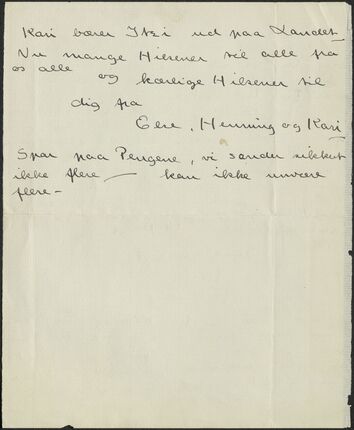 Kari bærer Itzi ud paa Landet
Nu mange Hilsener til alle fra
os alle og kærlige Hilsener til
dig fra
Eese, Henning og Kari
Spar paa Pengene, vi sender sikkert
ikke flere — kan ikke undvære
flere —